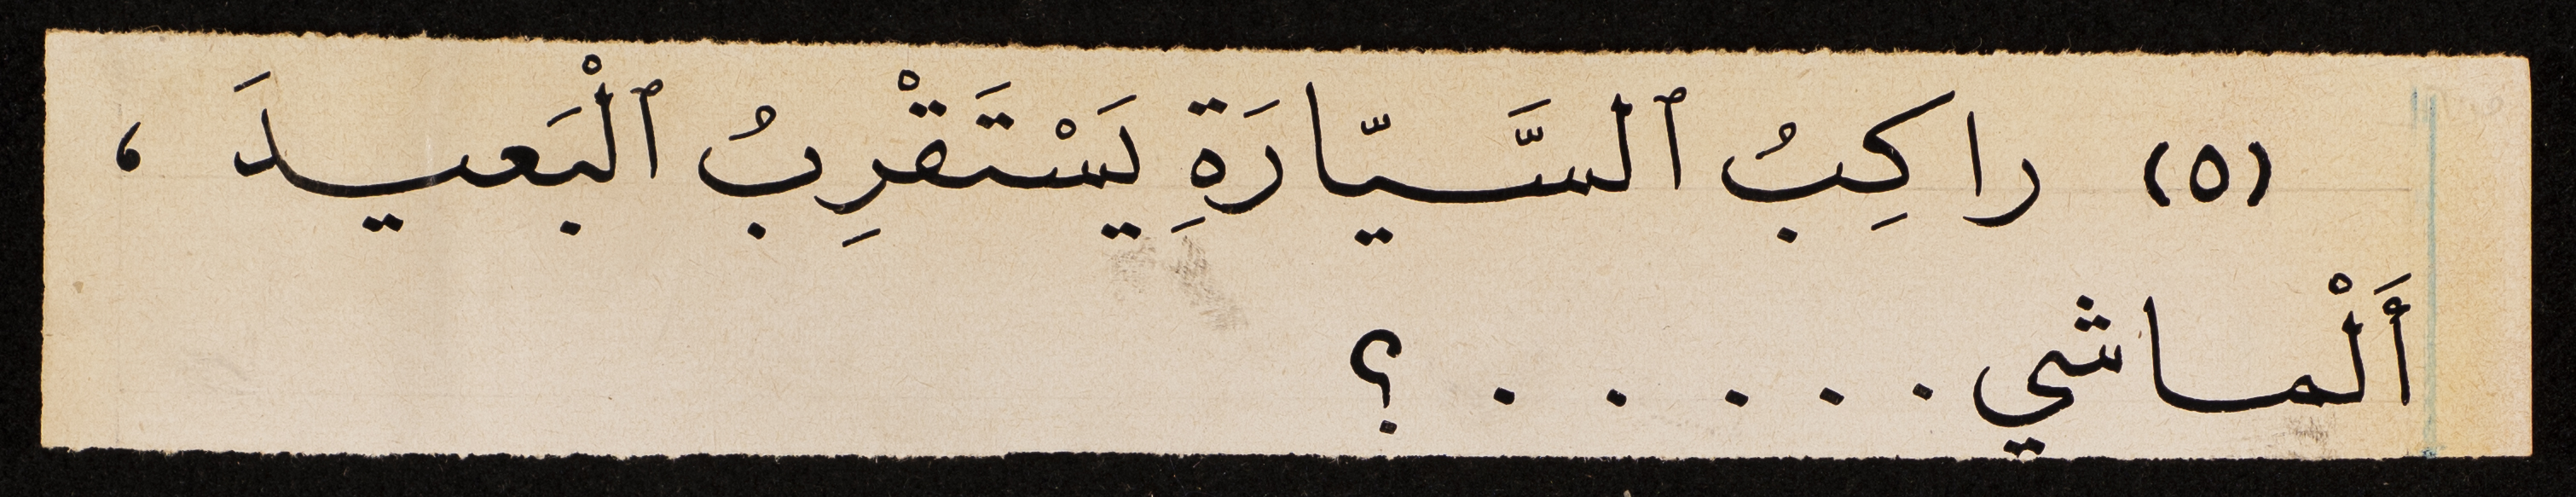 (٥) راكِبُ ٱلسَّيّارَةِ يَسْتَقْرِبُ ٱلْبَعيدَ ،
أَلْماشي . . . . . . ؟